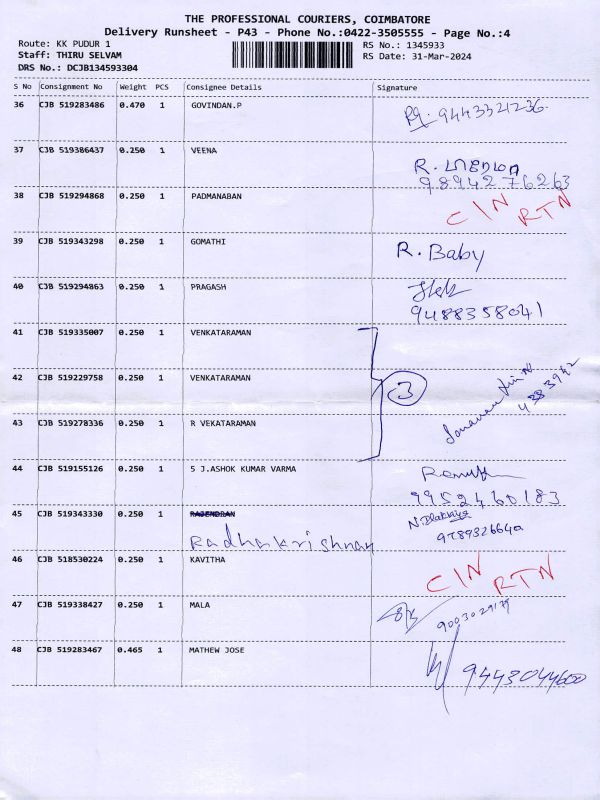 THE PROFESSIONAL COURIERS, COIMBATORE
Delivery Runsheet - P43 - Phone No.:0422-3505555 - Page No.:4
Route: KK PUDUR 1
Staff: THIRU SELVAM
DRS No.: DCJB134593304
RS No.: 1345933
RS Date: 31-Mar-2024
S No Consignment No Weight PCS Consignee Details Signature
36 CJB 519283486 0.470 1 GOVINDAN.P 9443321236
37 CJB 519386437 0.250 1 VEENA R.
98942 76263
38 CJB 519294868 0.250 1 PADMANABAN CIN RTN
39 CJB 519343298 0.250 1 GOMATHI R. Baby
40 CJB 519294863 0.250 1 PRAGASH
9488358041
41 CJB 519335007 0.250 1 VENKATARAMAN
42 CJB 519229758 0.250 1 VENKATARAMAN 3
43 CJB 519278336 0.250 1 R VEKATARAMAN
44 CJB 519155126 0.250 1 S J.ASHOK KUMAR VARMA
9952460183
45 CJB 519343330 0.250 1 RAJENDRAN
Radhakrishnan
46 CJB 518530224 0.250 1 KAVITHA CIN RTN
47 CJB 519338427 0.250 1 MALA
48 CJB 519283467 0.465 1 MATHEW JOSE 9443044600